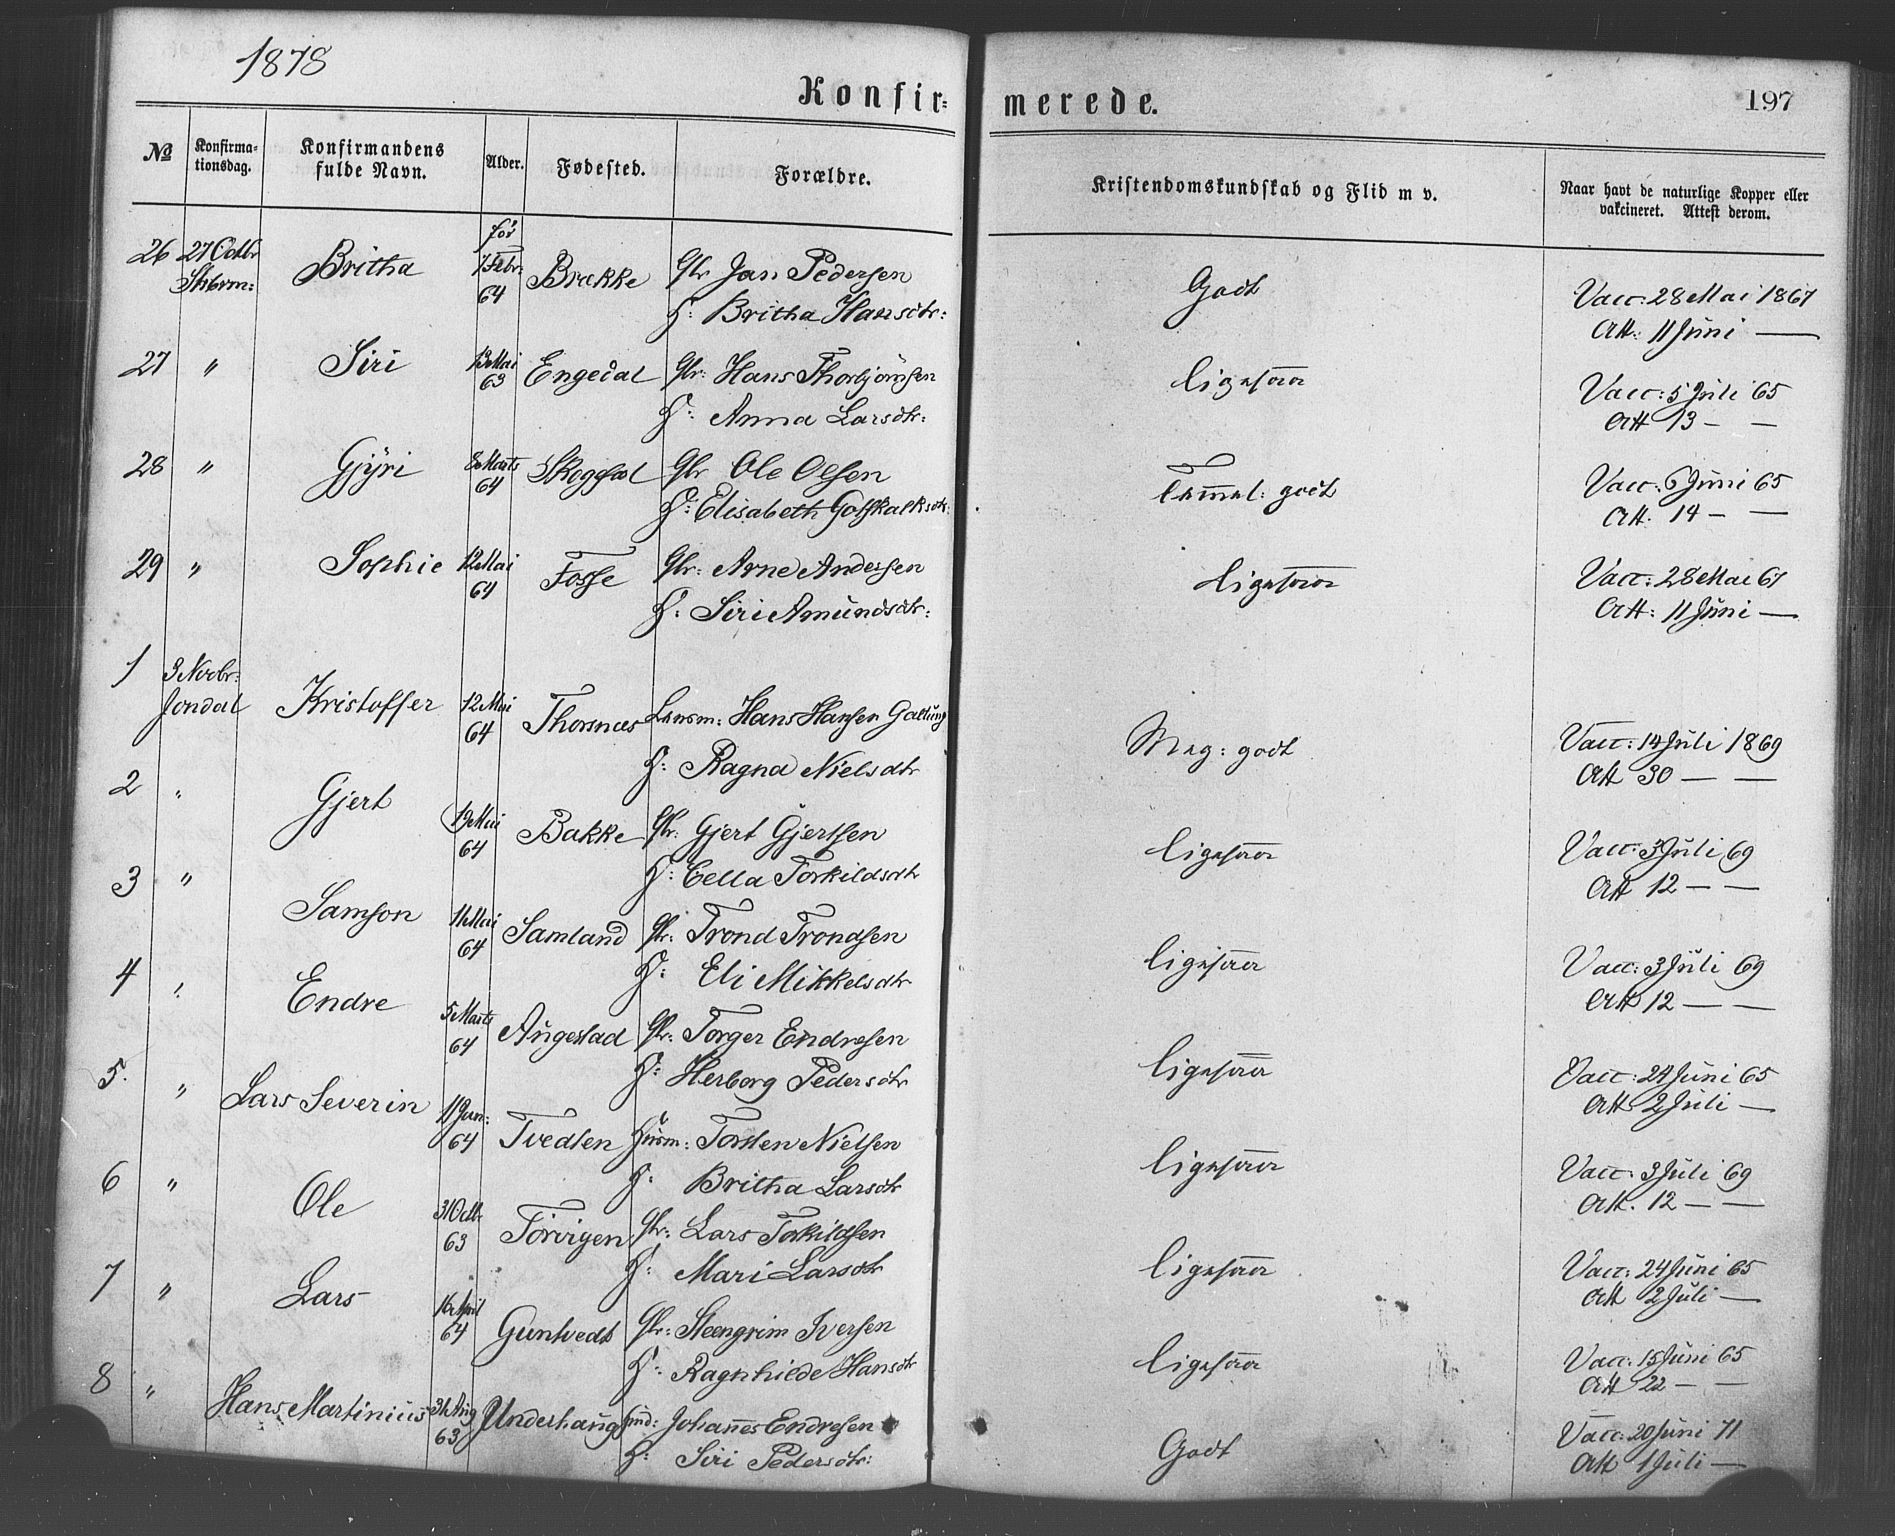 1878
Konfir=
merede.
197
No
Konfirma-
tionsdag.
Konfirmandens
fulde Navn.
Alder.
Fødested.
Forældre.
Kristendomskundskab og Flid m v.
Naar havt de naturlige Kopper eller
vakcineret. Attest derom.
før
26 27 Octbr Britha 7 Febr: Brække Gbr Jan Pedersen Godt Vacc: 28 Mai 1867
64 H: Britha Hansdtr: Att: 11 Juni —
27 " Siri 13 Mai Engedal Gbr: Hans Thorbjörnsen ligesaa Vacc: 5 Juli 65
63 H: Anna Larsdtr: Att 13 — —
28 " Gjŭri 8 Marts Gbr Ole Olsen Temmel: godt Vacc. 6 Juni 65
64 H: Elisabeth Gotskalksdtr. Att. 14 — —
29 " Sophie 12 Mai Fosse Gbr: Arne Andersen ligesaa Vacc: 28 Mai 67
64 H: Siri Amundsdtr: Att: 11 Juni —
1 3 Novbr: Kristoffer 12 Mai Thorsnæs Lensm: Hans Hansen Galtung Meg: godt Vacc: 14 Juli 1869
Jondal 64 H: Ragna Nielsdtr Att 30 — —
2 " Gjert 19 Mai Bakke Gbr: Gjert Gjertsen ligesaa Vacc: 3 Juli 69
64 H: Cella Torkildsdtr Att 12 — —
3 " Samson Mai Samland Gbr: Trond Trondsen ligesaa Vacc: 3 Juli 69
64 H: Eli Mikkelsdtr Att 12 — —
4 " Endre 5 Marts Augestad Gbr: Torger Endresen ligesaa Vacc: 24 Juni 65
64 H: Herborg Pedersdtr Att 2 Juli —
5. " Lars Severin 11 Jan: Tvedten Husm: Torsten Nielsen ligesaa Vacc: 3 Juli 69
64 H: Britha Larsdtr Att. 12 — —
6 " Ole 31 Octb Törvigen Gbr: Lars Torkildsen ligesaa Vacc: 24 Juni 65
63 H: Mari Larsdtr Att 2 Juli —
7 " Lars 16 April Guntvedt Gbr: Steengrim Iversen ligesaa Vacc: 15 Juni 65
64 H: Ragnhilde Hansdtr Att 22 — —
8 " Hans Martinius 31 Aug Underhaug Ind: Johannes Endresen Godt Vacc: 20 Juni 71
63 H: Siri Pedersdtr: Att 1 Juli —